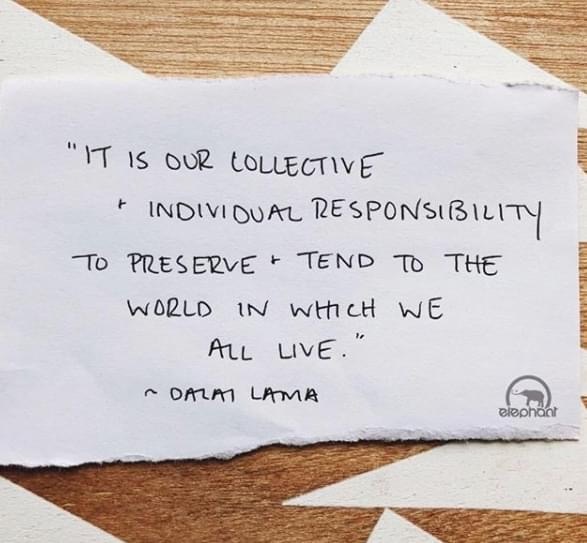 "IT IS OUR COLLECTIVE
+ INDIVIDUAL RESPONSIBILITY
TO PRESERVE + TEND TO THE
WORLD IN WHICH WE
ALL LIVE."
~ DALAI LAMA
elephant